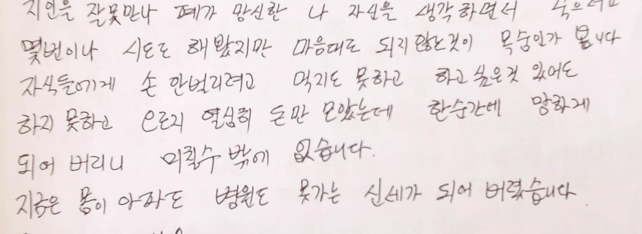 지인을 잘못만나 폐가 망신한 나 자신을 생각하면서 죽으려고
몇번이나 시도도 해봤지만 마음대로 되지 않는것이 목숨인가 봅니다
자식들에게 손 안벌리려고 먹지도 못하고 하고 싶은것 있어도
하지 못하고 오로지 열심히 돈만 모았는데 한순간에 망하게
되어 버리니 미칠수 밖에 없습니다.
지금은 몸이 아파도 병원도 못가는 신세가 되어 버렸습니다.